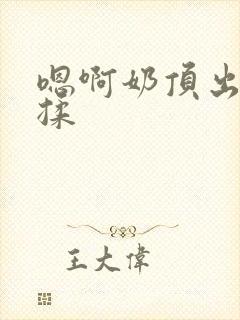 嗯啊奶頂出
揉
王大偉